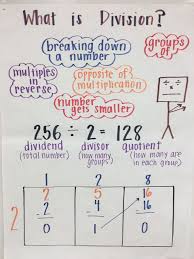 What is Division?
breaking down
a number
groups
of
multiples
in
reverse
opposite of
multiplication
number
gets smaller
256 ÷ 2 = 128
dividend
(total number)
divisor
(how many
groups)
quotient
(how many are
in each group)
1 2 8
2 2 5 16
- 2 - 4 - 16
0 1 0